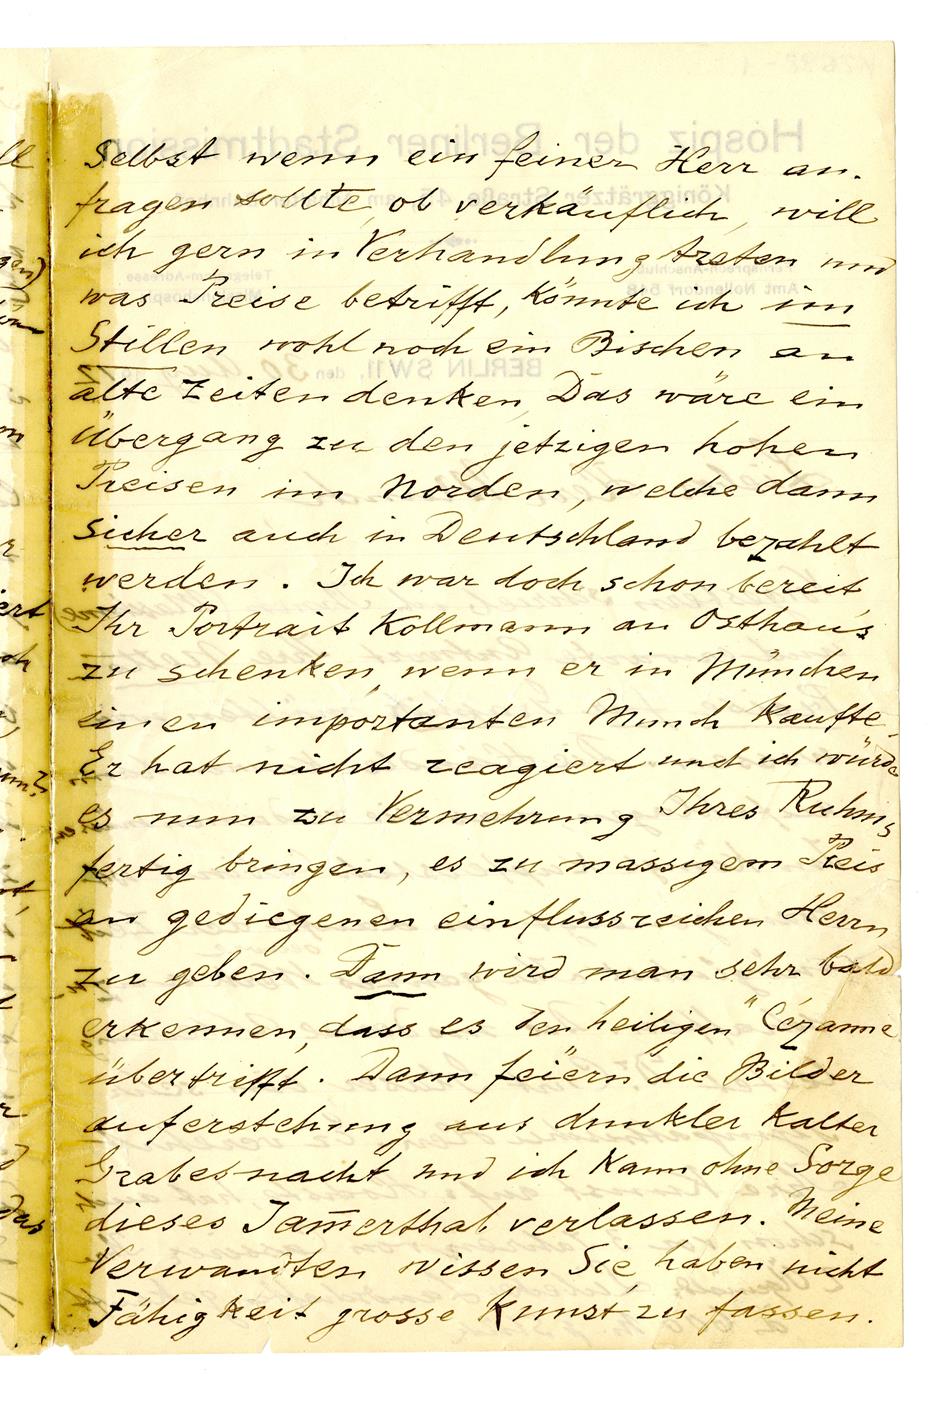 Selbst wenn ein feiner Herr an-
fragen sollte, ob verkäuflich, will
ich gern in Verhandlung treten und
was Preise betrifft, könnte ich im
Stillen wohl noch ein Bischen an
alte Zeiten denken. Das wäre ein
Übergang zu den jetzigen hohen
Preisen im Norden, welche dann
sicher auch in Deutschland bezahlt
werden. Ich war doch schon bereit
Ihr Portrait Kollmann an Osthaus
zu schenken, wenn er in München
einen importanten Munch kaufte.
Er hat nicht reagiert und ich würde
es nun zu Vermehrung Ihres Ruhms
fertig bringen, es zu massigem Preis
an gediegenen einflussreichen Herrn
zu geben. Dann wird man sehr bald
erkennen, dass es den heiligen" Cézanne
übertrifft. Dann feiern die Bilder
auferstehung aus dunkler kalter
Grabesnacht und ich kann ohne Sorge
dieses Jam̄erthal verlassen. Meine
Verwandten wissen Sie, haben nicht
Fähigkeit grosse Kunst zu fassen.
Hospiz der Berliner Stadtmission
Königgrätzer Straße
Amt Nollendorf
BERLIN SW 11, den 30